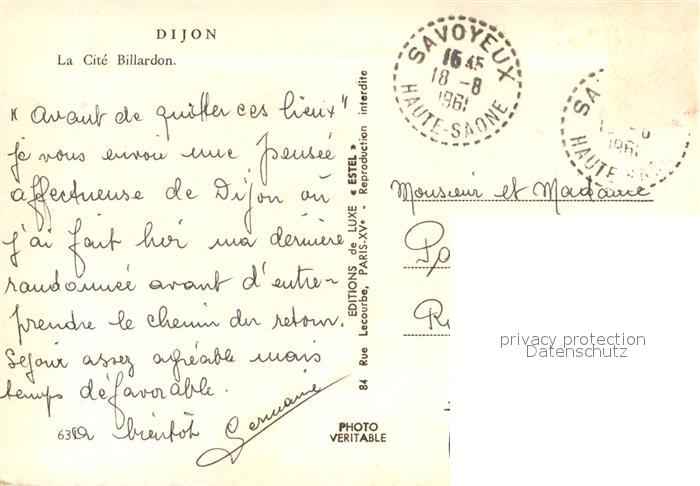 DIJON
La Cité Billardon.
" Avant de quitter ces lieux "
je vous envoie une pensée
affectueuse de Dijon où
j'ai fait hier ma dernière
randonnée avant d'entre-
prendre le chemin du retour.
Séjour assez agréable mais
temps défavorable.
A bientôt Germaine
63
EDITIONS de LUXE « ESTEL »
84 Rue Lecourbe, PARIS-XVe - Reproduction interdite
PHOTO
VERITABLE
SAVOYEUX
16 45
18 -8
1961
HAUTE-SAONE
SA
1961
HAUTE
Monsieur et Madame
Pa
R
privacy protection
Datenschutz